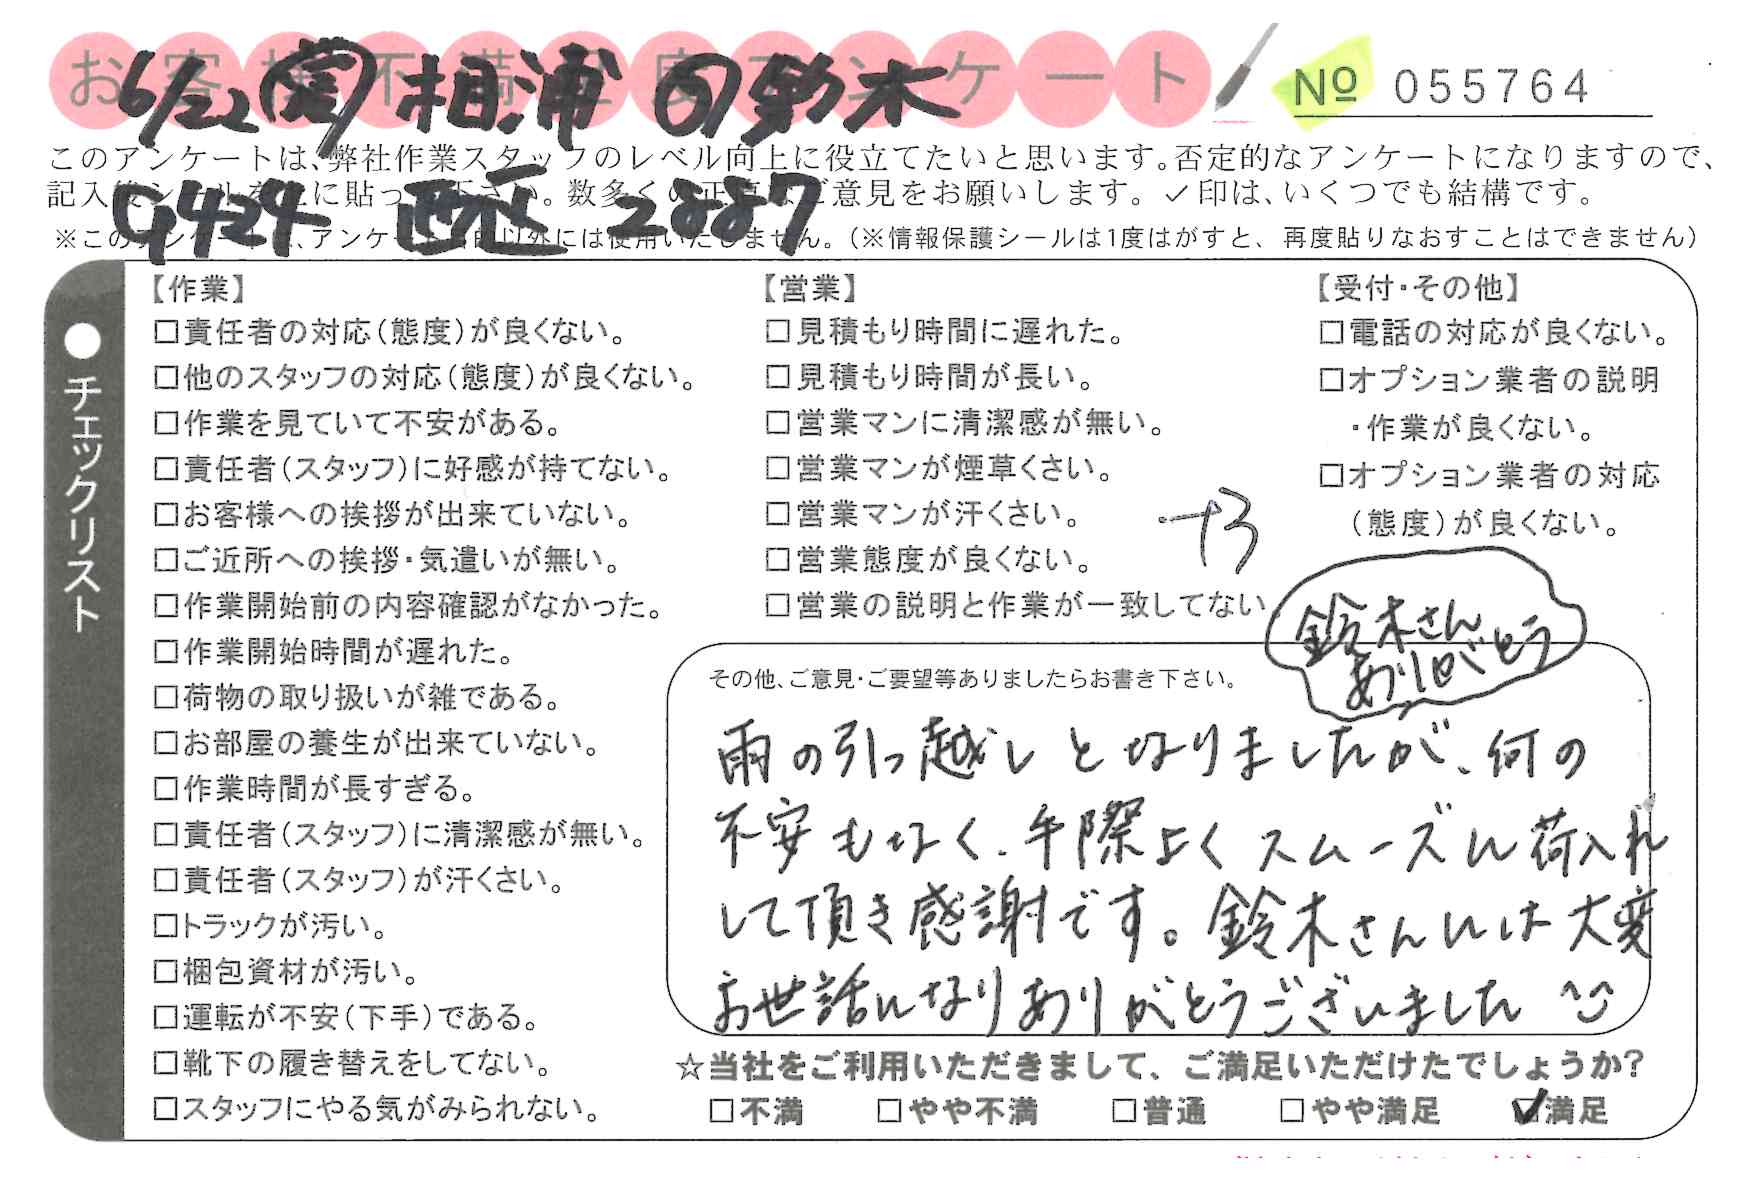 お客様不満足度アンケート
№ 055764
6/22 相浦 鈴木
このアンケートは、弊社作業スタッフのレベル向上に役立てたいと思います。否定的なアンケートになりますので、
記入後シールを上に貼って下さい。数多くの正直なご意見をお願いします。✓印は、いくつでも結構です。
G424 西区 2887
※このアンケートは、アンケート目的以外には使用いたしません。（※情報保護シールは1度はがすと、再度貼りなおすことはできません）
●チェックリスト
【作業】
□責任者の対応（態度）が良くない。
□他のスタッフの対応（態度）が良くない。
□作業を見ていて不安がある。
□責任者（スタッフ）に好感が持てない。
□お客様への挨拶が出来ていない。
□ご近所への挨拶・気遣いが無い。
□作業開始前の内容確認がなかった。
□作業開始時間が遅れた。
□荷物の取り扱いが雑である。
□お部屋の養生が出来ていない。
□作業時間が長すぎる。
□責任者（スタッフ）に清潔感が無い。
□責任者（スタッフ）が汗くさい。
□トラックが汚い。
□梱包資材が汚い。
□運転が不安（下手）である。
□靴下の履き替えをしてない。
□スタッフにやる気がみられない。
【営業】
□見積もり時間に遅れた。
□見積もり時間が長い。
□営業マンに清潔感が無い。
□営業マンが煙草くさい。
□営業マンが汗くさい。
□営業態度が良くない。
□営業の説明と作業が一致してない
【受付・その他】
□電話の対応が良くない。
□オプション業者の説明
・作業が良くない。
□オプション業者の対応
（態度）が良くない。
+3
鈴木さん
ありがとう
その他、ご意見・ご要望等ありましたらお書き下さい。
雨の引っ越しとなりましたが、何の
不安もなく、手際よくスムーズに荷入れ
して頂き感謝です。鈴木さんには大変
お世話になりありがとうございました ^^
☆当社をご利用いただきまして、ご満足いただけたでしょうか？
□不満 □やや不満 □普通 □やや満足 ☑満足